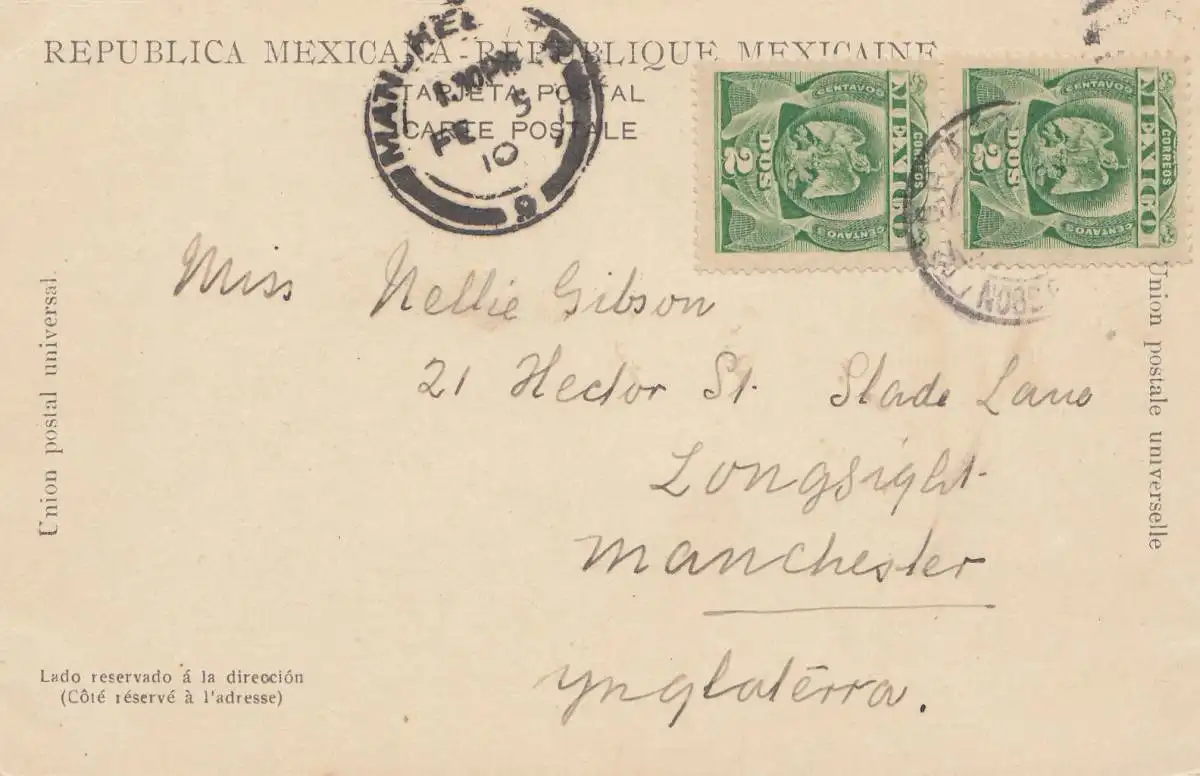 REPUBLICA MEXICANA - REPUBLIQUE MEXICAINE
TARJETA POSTAL
CARTE POSTALE
1.10PM
FE 5
10
9
CENTAVOS
MEXICO
CORREOS
DOS
2
CENTAVOS
CENTAVOS
MEXICO
CORREOS
DOS
2
CENTAVOS
Miss Nellie Gibson
21 Hector St. Slade Lane
Longsight
Manchester
Ynglatérra.
Union postal universal
Union postale universelle
Lado reservado á la dirección
(Côté réservé à l'adresse)